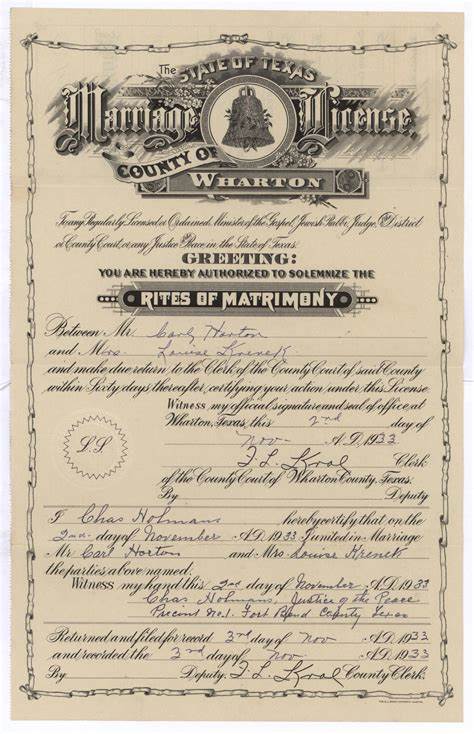 The STATE OF TEXAS
Marriage License
COUNTY OF
WHARTON
To any Regularly Licensed or Ordained Minister of the Gospel, Jewish Rabbi, Judge, District
or County Court, or any Justice Peace in the State of Texas.
GREETING:
YOU ARE HEREBY AUTHORIZED TO SOLEMNIZE THE
RITES OF MATRIMONY
Between Mr. Carl Horton
and Mrs. Louise Krenek
and make due return to the Clerk of the County Court of said County
within Sixty days thereafter, certifying your action under this License.
Witness my official signature and seal of office, at
Wharton, Texas, this 2nd day of
Nov- A.D. 1933
L.S.
F L Kral Clerk
of the County Court of Wharton County, Texas.
By Deputy
I Chas Holmans hereby certify that on the
2nd day of November A.D. 1933 I united in Marriage
Mr Carl Horton and Mrs Louise Krenek
the parties above named.
Witness my hand this 2nd day of November A.D. 1933
Chas Holmans, Justice of the Peace
Precint No 1. Fort Bend County Texas
Returned and filed for record 3rd day of Nov A.D. 1933
and recorded the 3rd day of Nov A.D. 1933
By Deputy. F. L Kral County Clerk.